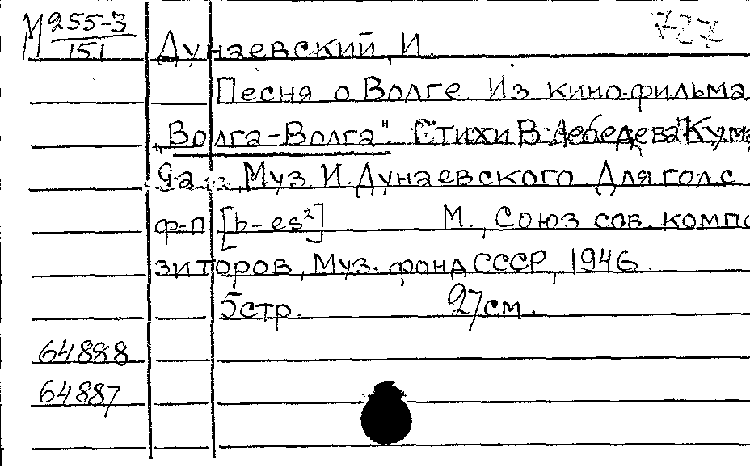 М 255-3
151
727
Дунаевский, И.
Песня о Волге. Из кинофильма
„Волга-Волга". Стихи В. Лебедева-Кума
ча, Муз. И. Дунаевского. Для гол. с
ф-п [h-es²] М., Союз сов. компо
зиторов, Муз. фонд СССР, 1946.
5 стр. 27 см.
64888
64887